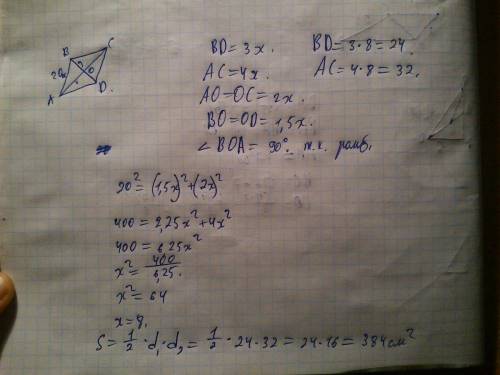 B C
20 O
A D
BD = 3x. BD = 3·8 = 24.
AC = 4x AC = 4·8 = 32.
AO = OC = 2x.
BO = OD = 1,5x.
∠BOA = 90°. т.к. ромб.
20² = (1,5x)² + (2x)²
400 = 2,25x² + 4x²
400 = 6,25x²
x² = 400/6,25.
x² = 64
x = 8.
S = 1/2 · d₁ · d₂ = 1/2 · 24 · 32 = 24 · 16 = 384 см²